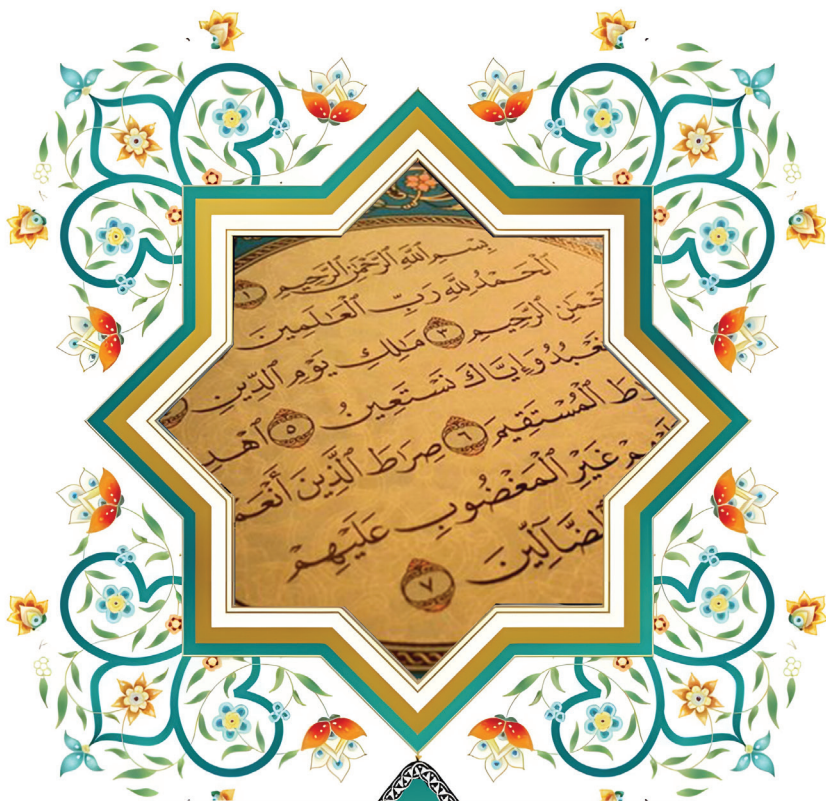 بِسْمِ ٱللَّهِ ٱلرَّحْمَٰنِ ٱلرَّحِيمِ ١
ٱلْحَمْدُ لِلَّهِ رَبِّ ٱلْعَٰلَمِينَ
ٱلرَّحِيمِ ٣ مَٰلِكِ يَوْمِ ٱلدِّينِ
نَعْبُدُ وَإِيَّاكَ نَسْتَعِينُ ٥
ٱلْمُسْتَقِيمَ ٦ صِرَٰطَ ٱلَّذِينَ
غَيْرِ ٱلْمَغْضُوبِ عَلَيْهِمْ
ٱلضَّآلِّينَ ٧